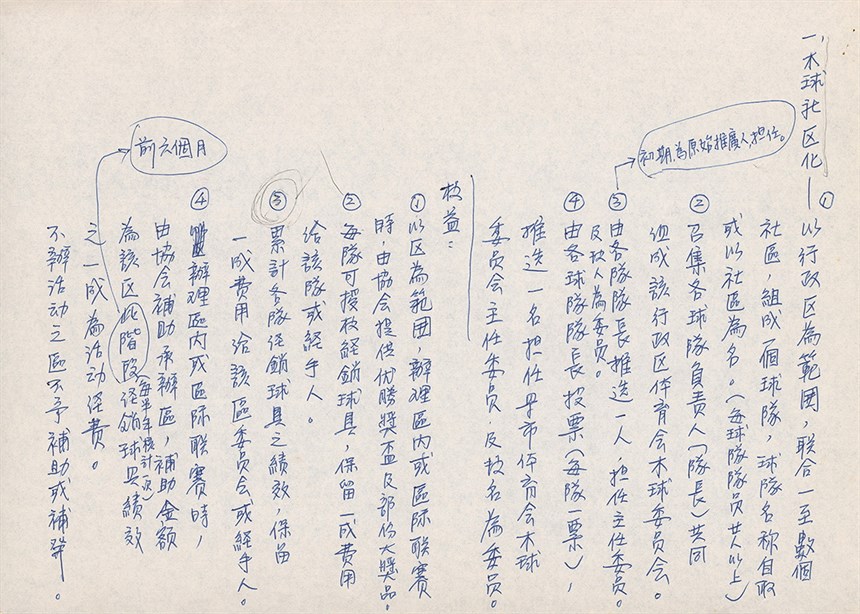 一、木球社区化—①以行政区為範囲，联合一至數個
社區，組成一個球隊，球隊名称自取
或以社區為名。(每球隊隊員廿人以上)
②召集各球隊負責人(隊長)共同
組成該行政区体育会木球委員会。
③由各隊隊長推选一人，担任主任委員。
及技人為委員。
初期為原始推廣人担任。
④由各球隊隊長投票(每隊一票)，
推选一名担任早市体育会木球
委員会主任委員，及技名為委員。
权益：
①以区為範囲，辦理區内或區际联賽
時，由協会提供优勝獎盃及部份大獎品。
②每隊可授权経銷球具，保留一成費用
給該隊或経手人。
③累計各隊促銷球具之績效，保留
一成費用給該區委員会或経手人。
④辦理區内或區际联賽時，
由協会補助承辦區，補助金額
為該区此階段経銷球具績效
(每半年核計一次)
前六個月
之一成為活动経費。
不辦活动之區不予補助或補發。